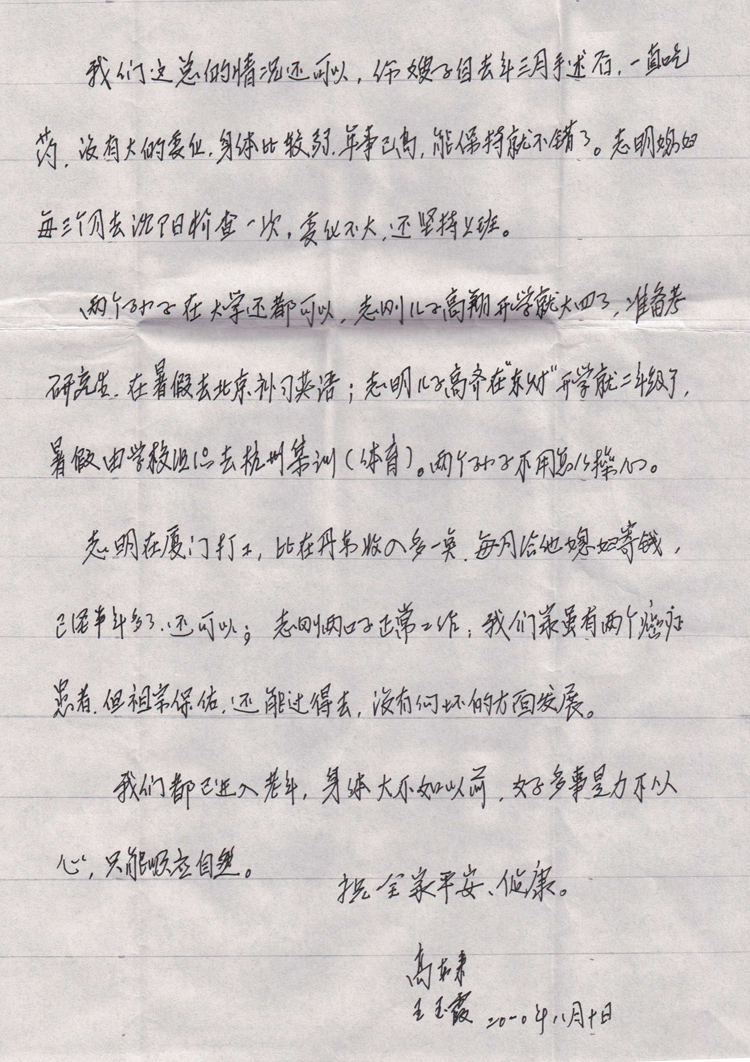 我们这总的情况还可以，你嫂子自去年三月手术后，一直吃
药，没有大的变化，身体比较弱，年事已高，能保持就不错了。志明媳妇
每三个月去沈阳检查一次，变化不大，还坚持上班。
两个孙子在大学还都可以，志刚儿子高翔开学就大四了，准备考
研究生，在暑假去北京补习英语；志明儿子高齐在"东财"开学就二年级了，
暑假由学校组织去杭州集训（体育）。两个孙子不用怎么操心。
志明在厦门打工，比在丹东收入多一些，每月给他媳妇寄钱，
已经半年多了，还可以；志刚两口子正常工作；我们家虽有两个癌症
患者，但祖宗保佑，还能过得去，没有向坏的方面发展。
我们都已进入老年，身体大不如以前，好多事是力不从
心，只能顺应自然。
祝全家平安、健康。
高
王玉霞 二〇一〇年八月十日